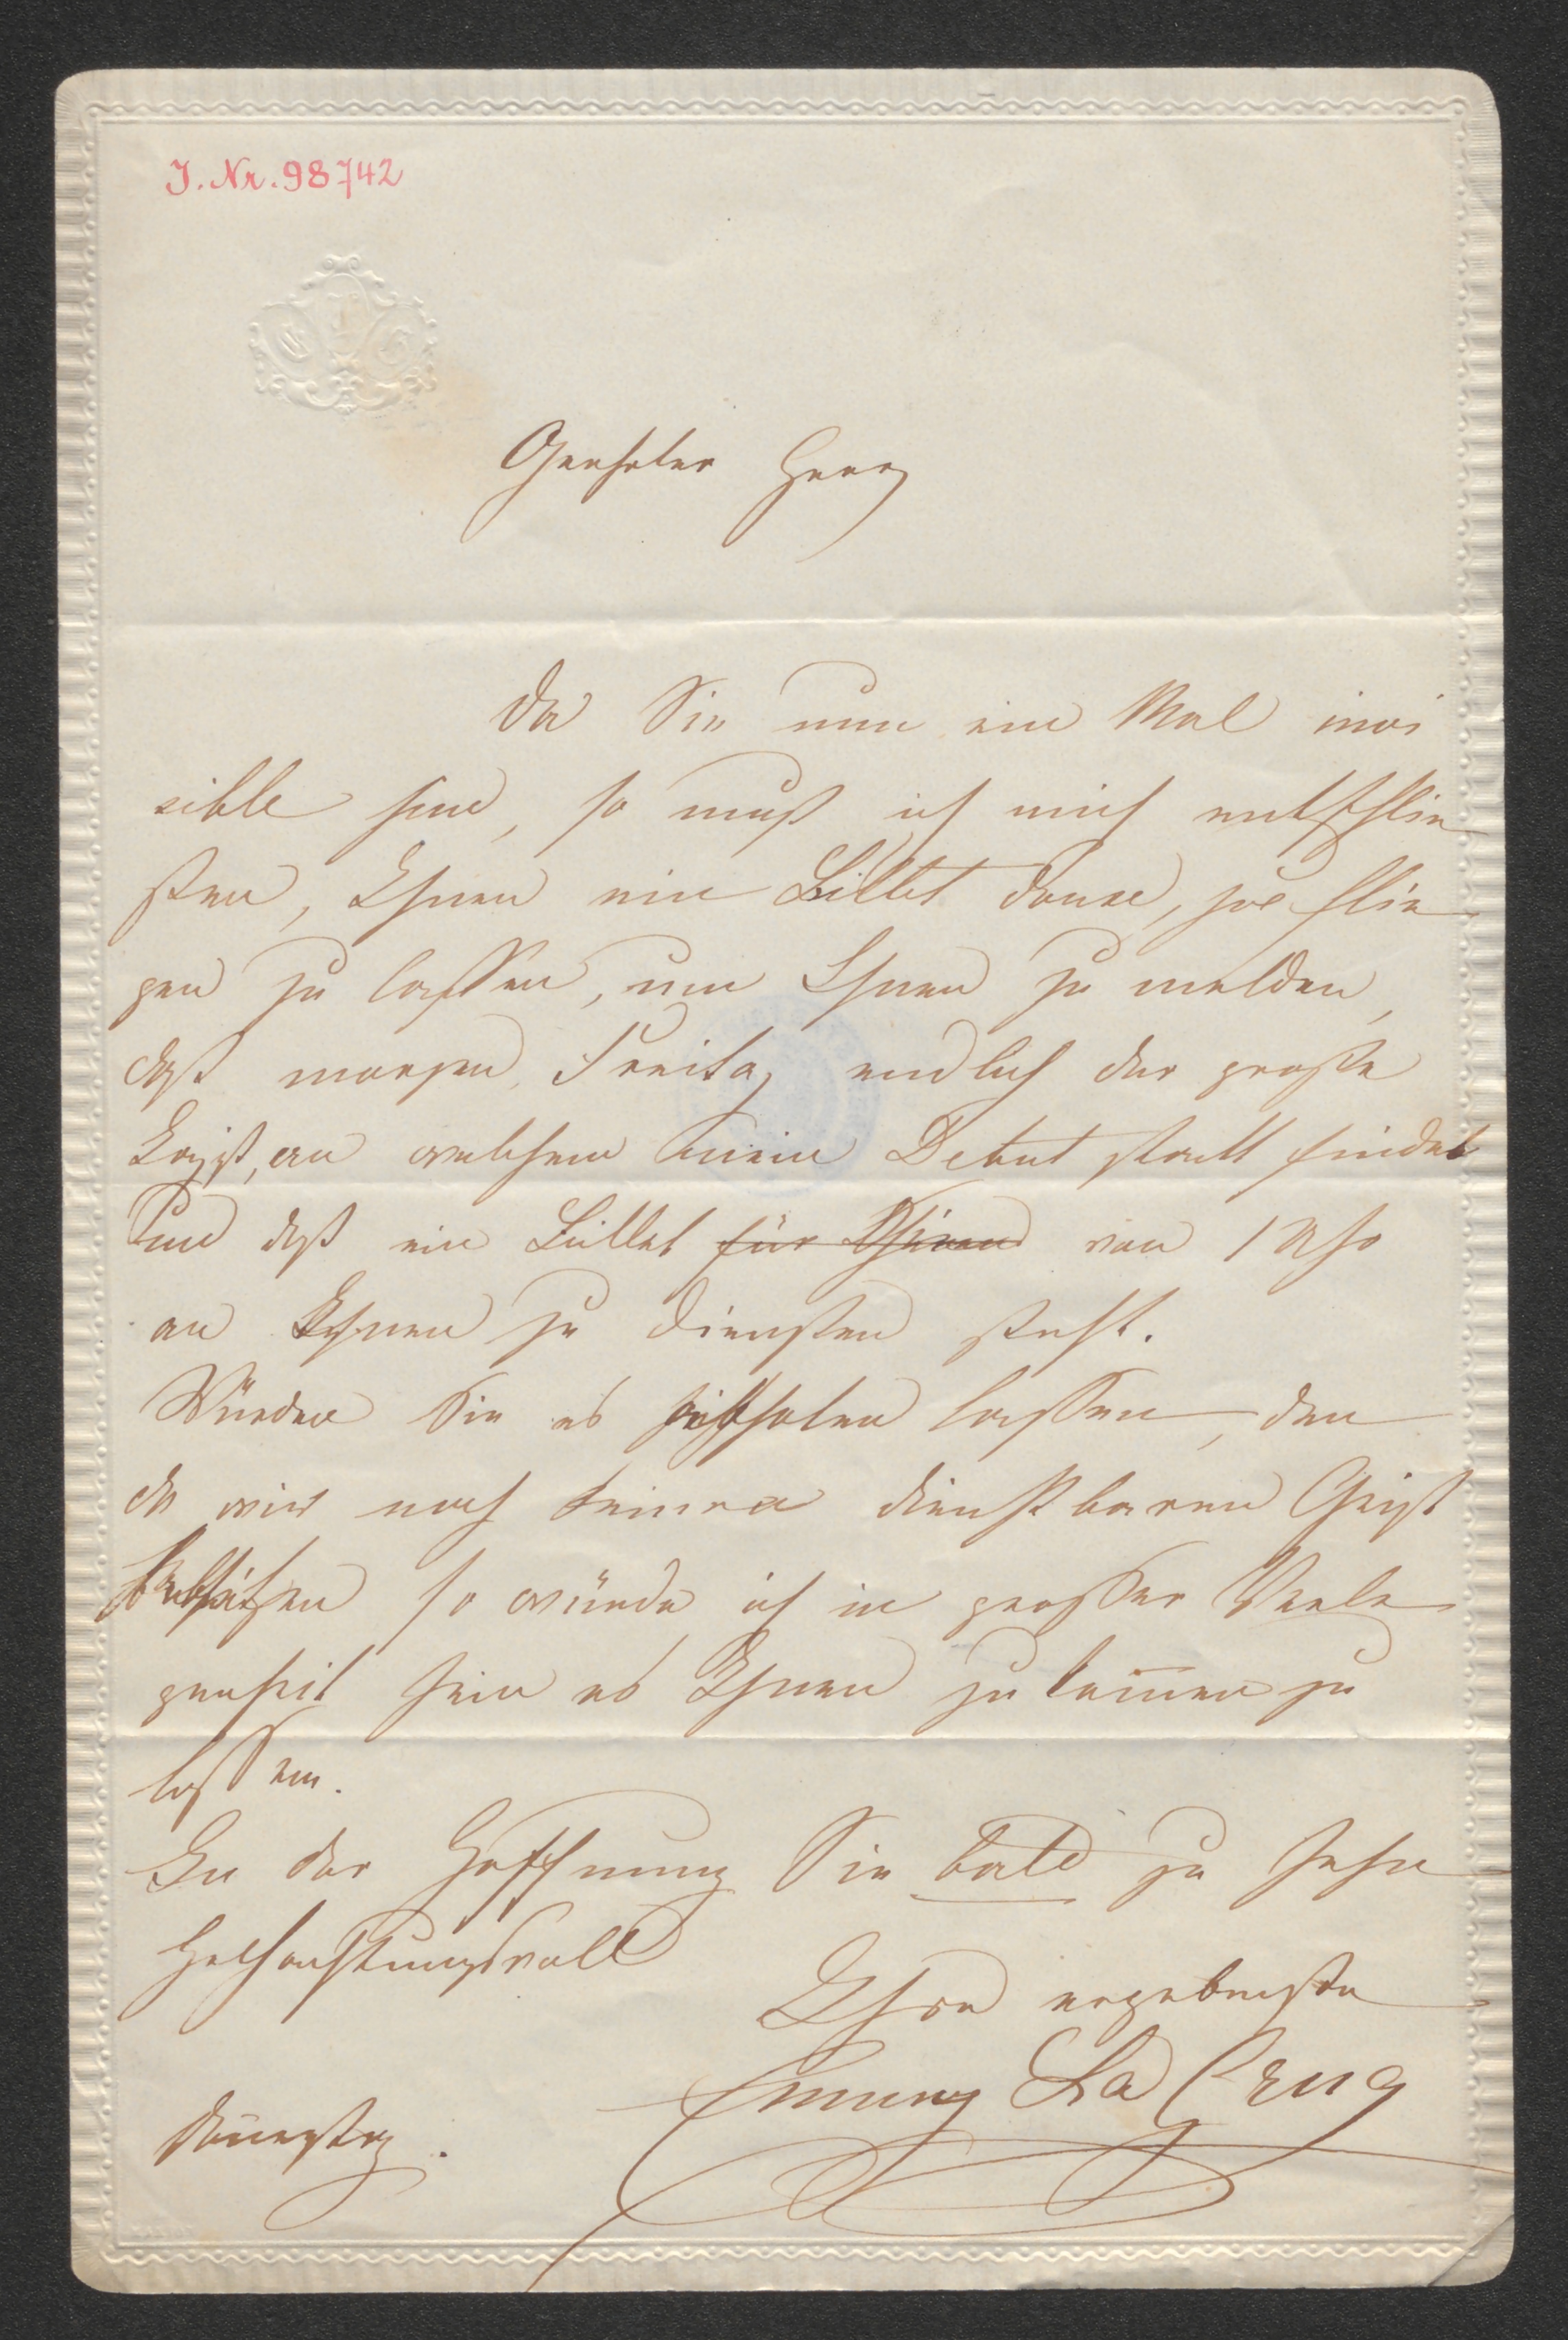 I. Nr. 98742
Geehrter Herr
Da Sie nun ein Mal invi
sible sind, so muß ich mich entschlie
ßen, Ihnen ein Billet zuflie
gen zu lassen, um Ihnen zu melden,
daß morgen, Freitag endlich der große
ist, an welchem mein Debut statt findet
und daß ein Billet für Ihnen von 1 Uhr
an Ihnen zu Diensten steht.
Würden Sie es holen lassen, den
da wir noch keinen dienstbaren Geist
besitzen so würde ich in großer Verle
genheit sein es Ihnen zu komen zu
lassen.
In der Hoffnung Sie bald zu sehn
Hochachtungsvoll
Ihre ergebenste
Emmy La Grua
Donnerstag.